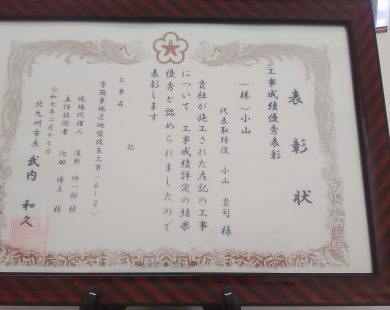 表彰状
工事成績優秀表彰
(株)小山
代表取締役 小山 貴司 様
貴社が施工された左記の工事
について 工事成績評定の結果
優秀と認められましたので
表彰します
記
工事名
学園表地区地盤改良工事(6-2)
現場代理人 濱野 伸一郎 様
主任技術者 池田 博文 様
令和七年二月十七日
北九州市長 武内 和久